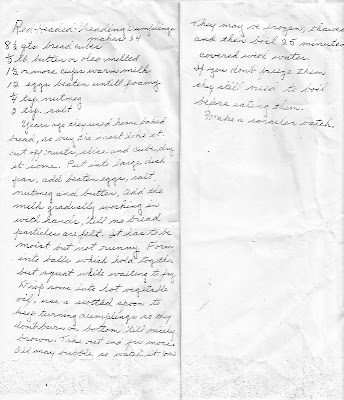 Red-headed-Wedding Dumplings
makes 34
8½ qts. bread cubes
½ lb butter or oleo melted
1½ or more cups warm milk
12 eggs beaten untill foamy
¼ tsp nutmeg
2 tsp. salt
Years ago they used home baked
bread, so buy the next like it.
cut off crusts, slice and cube, dry
it some. Put into large dish
pan, add beaten eggs, salt,
nutmeg and butter, add the
milk gradually working in
with hands, till no bread
particles are felt. It has to be
moist but not runny. Form
into balls which hold together
but squat while waiting to fry.
Drop some into hot vegetable
oil, use a slotted spoon to
keep turning dumplings so they
don't burn on bottom, till nicely
brown. Take out and fry more.
Oil may bubble so watch it
They may be frozen, thawed
and then boil 25 minutes
covered with water.
If you don't freeze them
they still need to boil
before eating them.
Make a smaller batch.